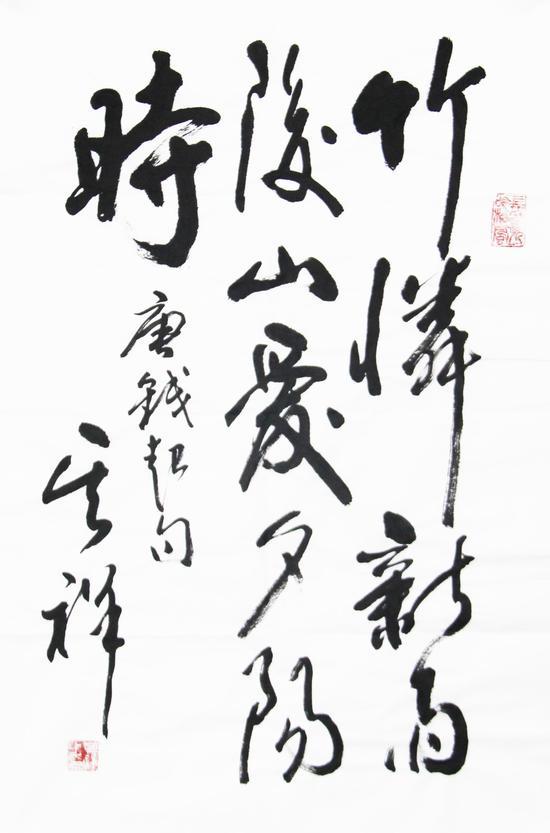 竹憐新雨
後山愛夕陽
時
唐錢起句
祥